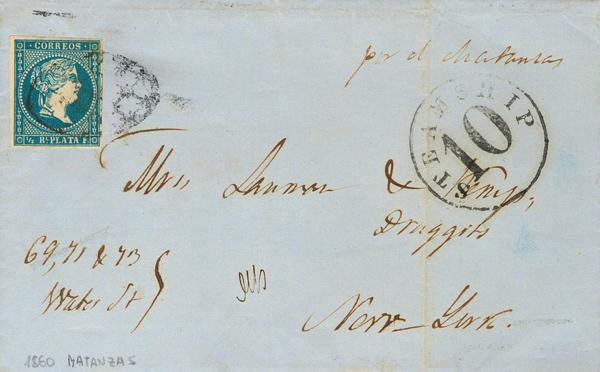 CORREOS
½ Rl. PLATA F.
por el Matanzas
STEAMSHIP
10
Mrss Lanman & Kemp,
Druggists
69, 71 & 73
Water St
New-York.
1860 MATANZAS